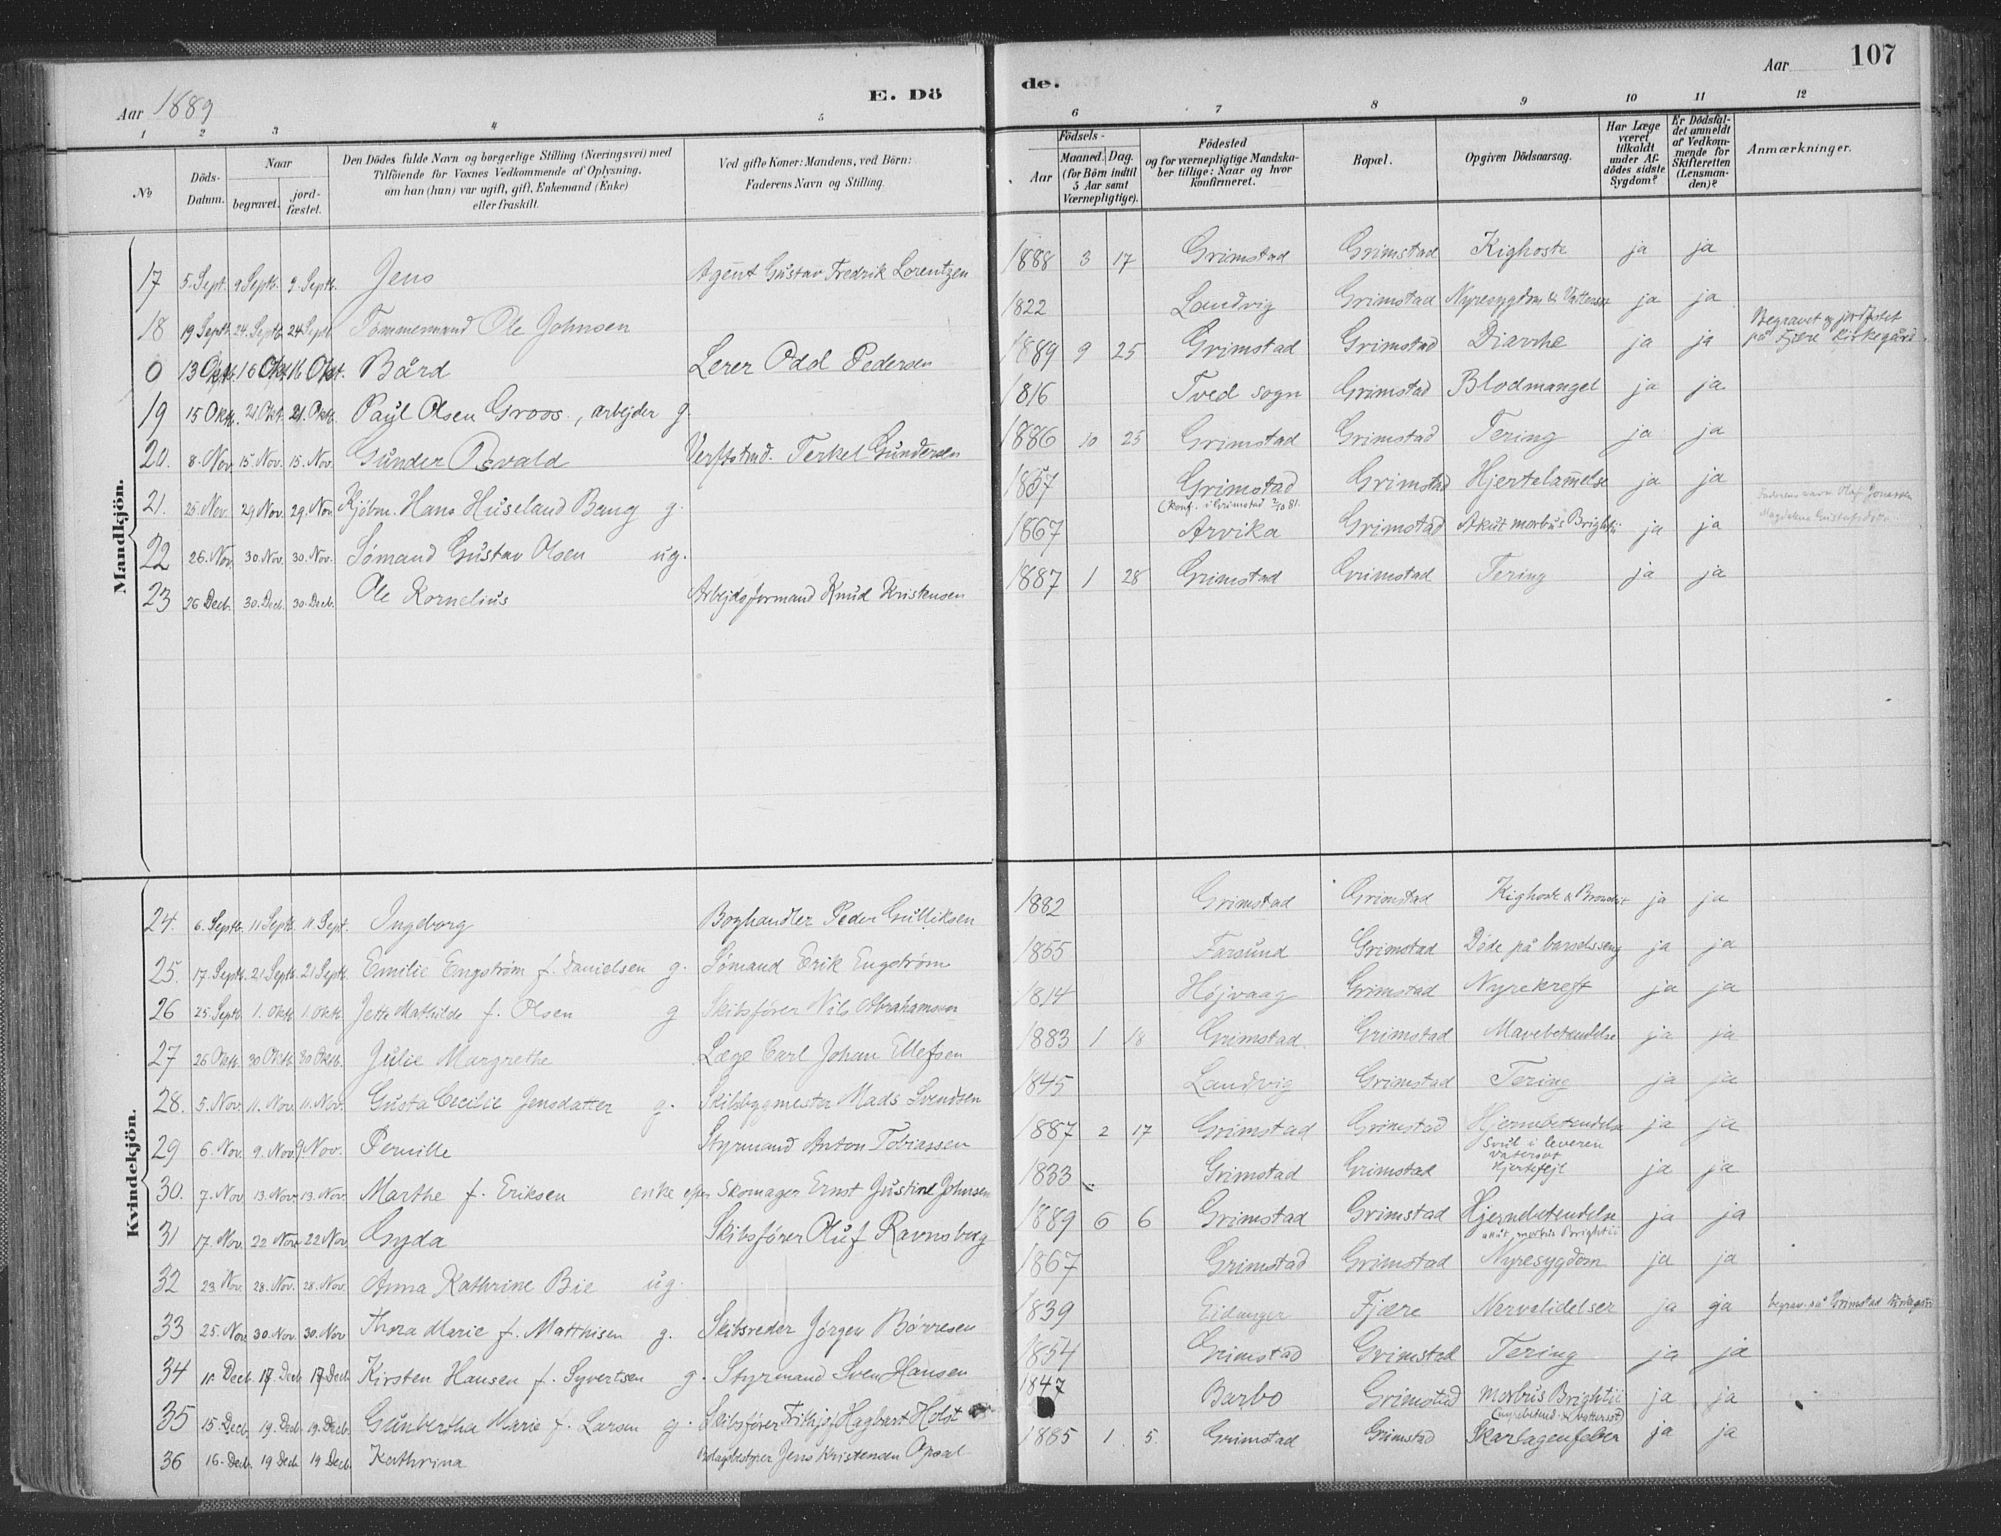 Aar 1889
E. Dö
de.
Aar
107
1 2 3 4 5 6 7 8 9 10 11 12
No
Döds-Datum.
Naar
begravet.
jord-fæstet.
Den Dödes fulde Navn og borgerlige Stilling (Næringsvei) med
Tilföiende for Voxnes Vedkommende af Oplysning,
om han (hun) var ugift, gift, Enkemand (Enke)
eller fraskilt.
Ved gifte Koner: Mandens, ved Börn:
Faderens Navn og Stilling.
Födsels-
Aar
Maaned. Dag.
(for Börn indtil
5 Aar samt
Værnepligtige).
Födested
og for værnepligtige Mandska-
ber tillige: Naar og hvor
konfirmeret.
Bopæl.
Opgiven Dödsaarsag.
Har Læge
været
tilkaldt
under Af-
dödes sidste
Sygdom?
Er Dödsfal-
det anmeldt
af Vedkom-
mende for
Skifteretten
(Lensman-
den)?
Anmærkninger.
Mandkjön.
17 5. Sept. 9 Septb. 9 Septb. Jens Agent Gustav Fredrik Lorentzen 1888 3 17 Grimstad Grimstad Kighoste ja ja
18 19 Septb. 24. Septb. 24 Sept. Tømmermand Ole Johnsen 1822 Landvig Grimstad Nyresygdom & Vattersot ja ja
0 13 Oktb. 16 Okt. 16 Okt. Bård Lerer Odd Pedersen 1889 9 25 Grimstad Grimstad Diarrhe ja ja Begravet og jordfæstet
på Fjære Kirkegård.
19 15 Okt. 21. Okt. 21. Okt. Paul Olsen Groos, arbejder g. 1816 Tved sogn Grimstad Blodmangel ja ja
20. 8. Nov 15 Nov. 15. Nov. Gunder Osvald Verftstmd. Terkel Gundersen 1886 10 25 Grimstad Grimstad Tering ja ja
21. 25. Nov. 29 Nov. 29. Nov. Kjøbm. Hans Huseland Bang g. 1857 Grimstad Grimstad Hjertelammelse ja ja
22 26. Nov. 30. Nov. 30. Nov. Sømand Gustav Olsen ug. 1867 (Konf. i Grimstad 2/10 81. Arvika Grimstad Akut morbus Brightii ja ja Faderens navn Olaf Jonassen
Magdalena Gustafsdotter
23 26 Decb. 30. Decb. 30. Decb. Ole Kornelius Arbejdsformand Knud Kristensen 1887 1 28 Grimstad Grimstad Tering ja ja
Kvindekjön.
24. 6. Septb. 11 Septb. 11 Sept. Ingeborg Boghandler Peder Gulliksen 1882 Grimstad Grimstad Kighoste & Bronchit ja ja
25. 17. Septb. 21 Septb. 21 Septb. Emilie Engstrøm f. Danielsen g. Sømand Erik Engstrøm 1855 Farsund Grimstad Døde på barselsseng ja ja
26 25. Septb. 1. Oktb. 1. Oktb. Jette Mathilde f. Olsen g Skibsfører Nils Abrahamsen 1814 Højvaag Grimstad Nyrekreft ja ja
27 26 Oktb. 30 Oktb. 30 Oktb. Julie Margrethe Læge Carl Johan Ellefsen 1883 1 18 Grimstad. Grimstad Mavebetendelse ja ja
28. 5. Nov. 11. Nov. 11. Nov. Gusta Cecilie Jensdatter g. Skibsbygmester Mads Svendsen 1845 Landvig Grimstad Tering ja ja
29 6. Nov. 9. Nov. 9 Nov. Pernille Styrmand Anton Tobiassen 1887 2 17 Grimstad Grimstad Hjernebetendelse ja ja
30. 7. Nov 13. Nov. 13. Nov. Marthe f. Eriksen enke efter Skomager Ernst Justine Johnsen 1833 Grimstad Grimstad Svul i leveren
Vatersot
Hjertefejl ja ja
31 17. Nov. 22 Nov 22 Nov. Gyda Skibsfører Oluf Ravnsberg 1889 6 6 Grimstad Grimstad Hjernebetendelse ja ja
32 23. Nov. 28. Nov. 28. Nov. Anna Kathrine Bie ug. 1867 Grimstad Grimstad akut morbus Brightii
Nyresygdom ja ja
33 25. Nov. 30. Nov. 30. Nov Thora Marie f. Matthisen g. Skibsreder Jørgen Børresen 1839 Eidanger Fjære Nervelidelser ja ja begrav. på Grimstad Kirkegård
34 11. Decb. 17 Decb 17 Decb. Kirsten Hansen f. Syvertsen g. Styrmand Sven Hansen 1854 Grimstad Grimstad Tering ja ja
35 15. Decb. 19. Decb. 19. Decb. Gunbertha Marie f. Larsen g. Skibsfører Fithjof Hagbart Holst 1847 Barbo Grimstad Morbus Brightii
(nyrebetend. & Vattersot) ja ja
36 16. Decb. 19 Decb. 19 Decb. Kathrina Bolagsbestyrer Jens Kristensen Opsal 1885 1 5. Grimstad Grimstad Skarlagensfeber ja ja